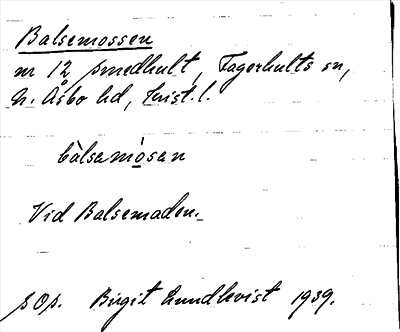 Balsemossen
nr 12 Smedhult, Fagerhults sn,
N. Åsbo hd, Krist. l.
bàlsamòsan
Vid Balsemaden.
S Op. Birgit Lundkvist 1939.